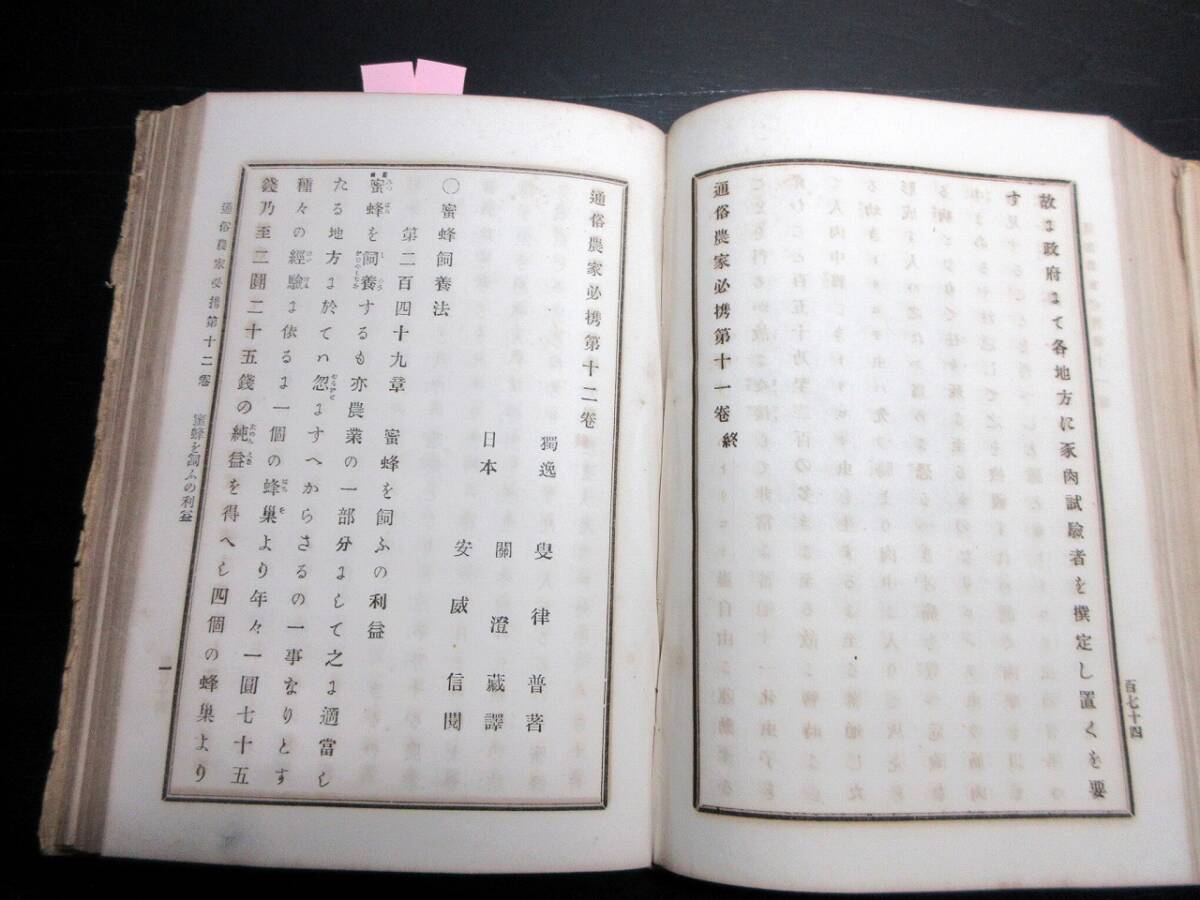 故に政府にて各地方に豕肉試驗者を撰定し置くを要
す
通俗農家必携第十一卷 終
百七十四
通俗農家必携第十二卷
獨逸 叟律普著
日本 關澄藏譯
安威信閱
〇蜜蜂飼養法
第二百四十九章 蜜蜂を飼ふの利益
蜜蜂を飼養するも亦農業の一部分にして之に適當し
たる地方に於てハ忽にすへからさるの一事なりとす
種々の經驗に依るに一個の蜂巢より年々一圓七十五
錢乃至二圓二十五錢の純益を得へし四個の蜂巢より
通俗農家必携第十二卷 蜜蜂を飼ふの利益
一